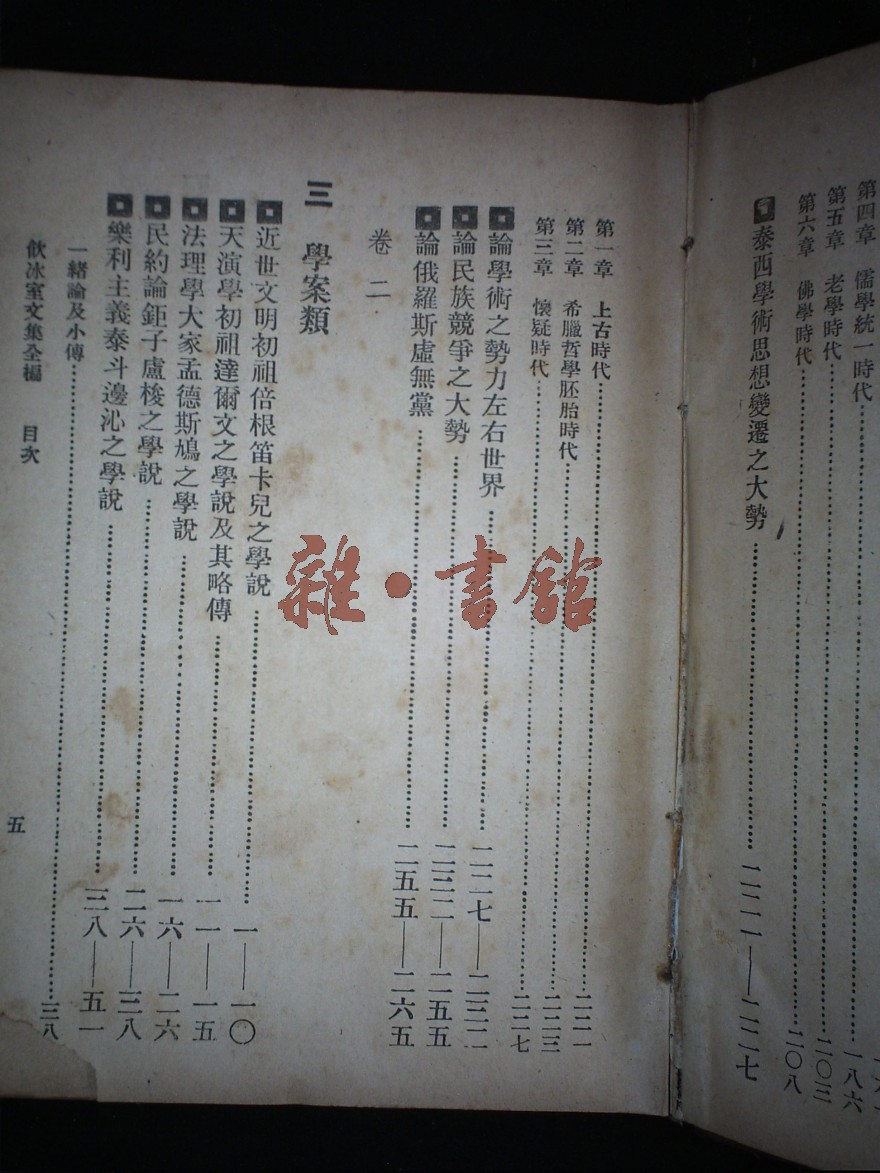 第四章　儒學統一時代……一八六
第五章　老學時代……二〇三
第六章　佛學時代……二〇八
泰西學術思想變遷之大勢……二二一——二二七
第一章　上古時代……二二一
第二章　希臘哲學胚胎時代……二二三
第三章　懷疑時代……二二七
論學術之勢力左右世界……二二七——二三二
論民族競爭之大勢……二三二——二五五
論俄羅斯虛無黨……二五五——二六五
卷二
三　學案類
近世文明初祖倍根笛卡兒之學說……一——一〇
天演學初祖達爾文之學說及其略傳……一一——一五
法理學大家孟德斯鳩之學說……一六——二六
民約論鉅子盧梭之學說……二六——三八
樂利主義泰斗邊沁之學說……三八——五一
一緒論及小傳……三八
飲冰室文集全編　目次
五
雜·書館